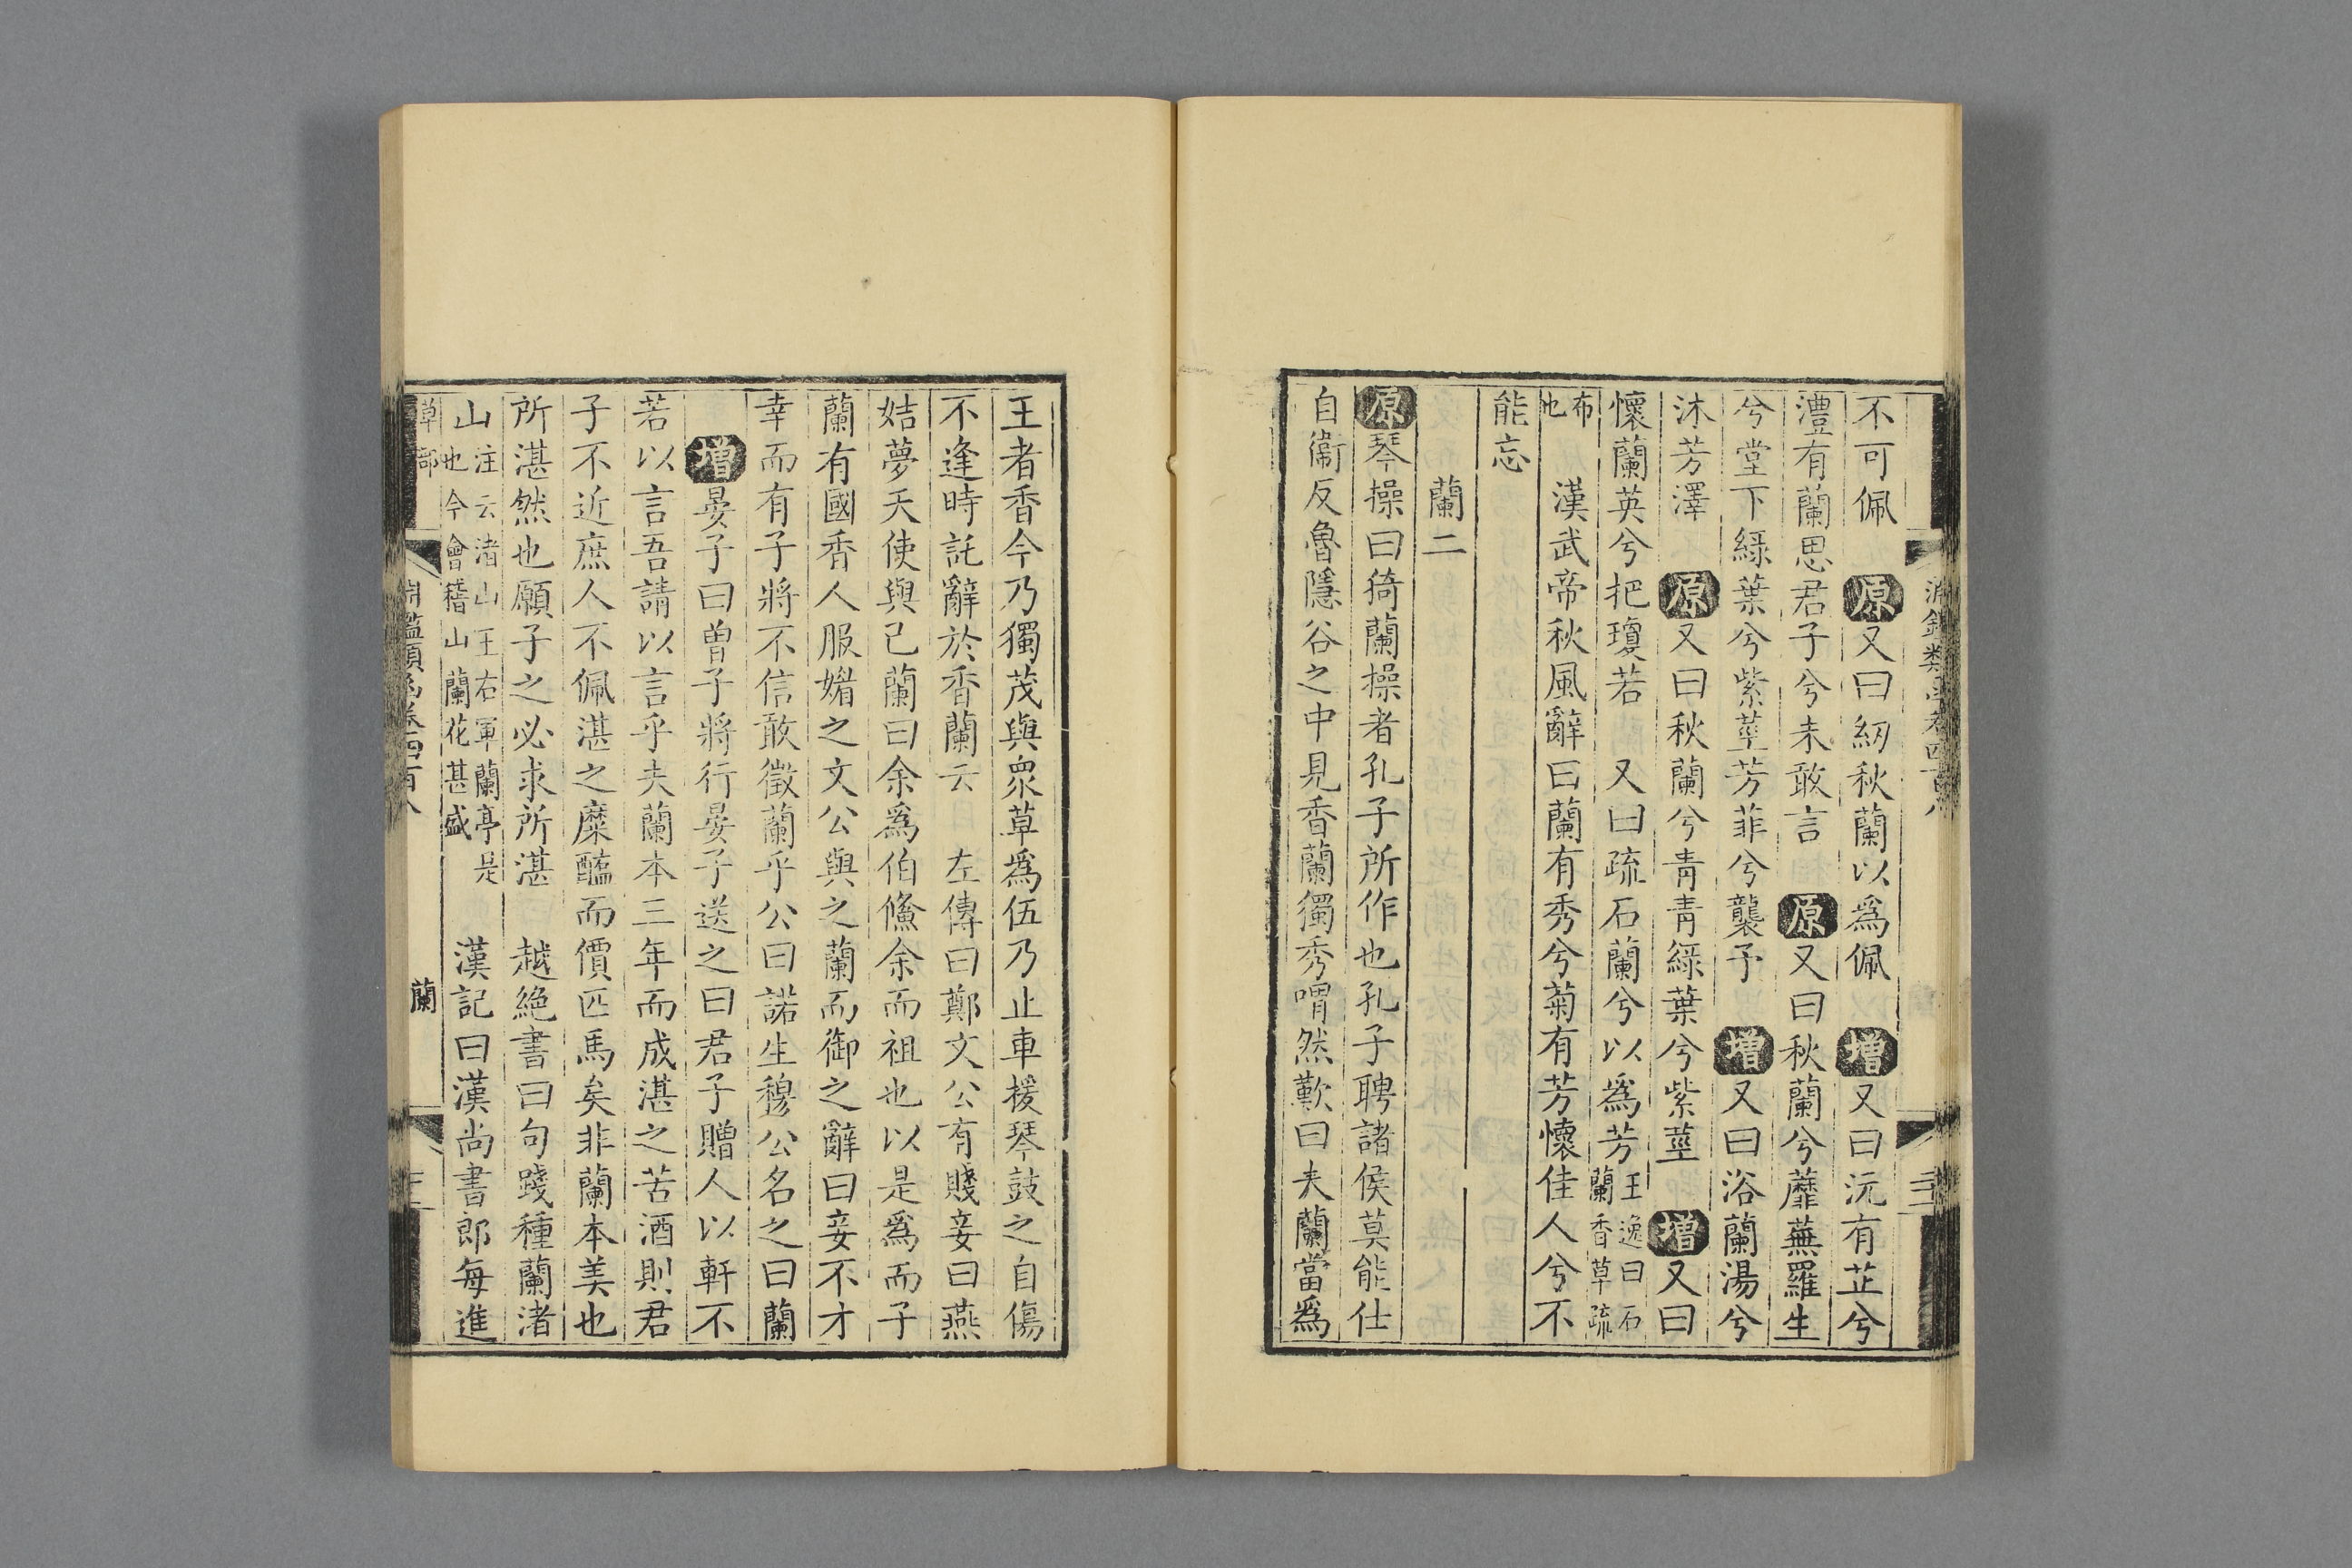 不可佩　原又曰紉秋蘭以爲佩　增又曰沅有芷兮
澧有蘭思君子兮未敢言　原又曰秋蘭兮蘼蕪羅生
兮堂下綠葉兮紫莖芳菲兮襲予　增又曰浴蘭湯兮
沐芳澤　原又曰秋蘭兮青青綠葉兮紫莖　增又曰
懷蘭英兮把瓊若　又曰疏石蘭兮以爲芳王逸曰石
蘭香草疏
布
也　漢武帝秋風辭曰蘭有秀兮菊有芳懷佳人兮不
能忘
蘭二
原琴操曰猗蘭操者孔子所作也孔子聘諸侯莫能仕
自衞反魯隱谷之中見香蘭獨秀喟然歎曰夫蘭當爲
王者香今乃獨茂與衆草爲伍乃止車援琴鼓之自傷
不逢時託辭於香蘭云　左傳曰鄭文公有賤妾曰燕
姞夢天使與己蘭曰余爲伯鯈余而祖也以是爲而子
蘭有國香人服媚之文公與之蘭而御之辭曰妾不才
幸而有子將不信敢徵蘭乎公曰諾生穆公名之曰蘭
增晏子曰曾子將行晏子送之曰君子贈人以軒不
若以言吾請以言乎夫蘭本三年而成湛之苦酒則君
子不近庶人不佩湛之糜醢而價匹馬矣非蘭本美也
所湛然也願子之必求所湛　越絕書曰句踐種蘭渚
山注云渚山王右軍蘭亭是
也今會稽山蘭花甚盛　漢記曰漢尚書郎每進
草部
淵鑑類函卷四百八
蘭